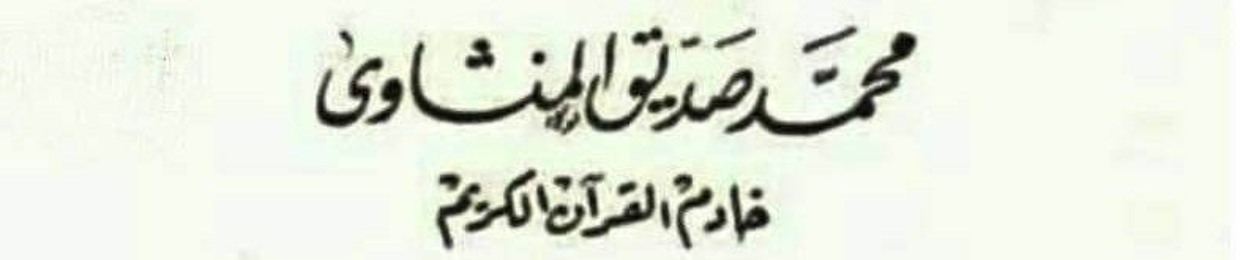 محمد صديق المنشاوى
خادم القرآن الكريم